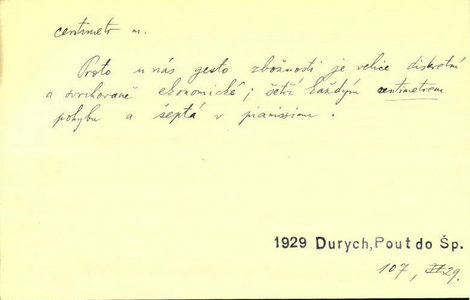 centimetr m.
Proto u nás gesto zbožnosti je velice diskretní
a svrchovaně ekonomické; šetří každým centimetrem
pohybu a šeptá v pianissimu.
1929 Durych, Pout do Šp.
107, 29.